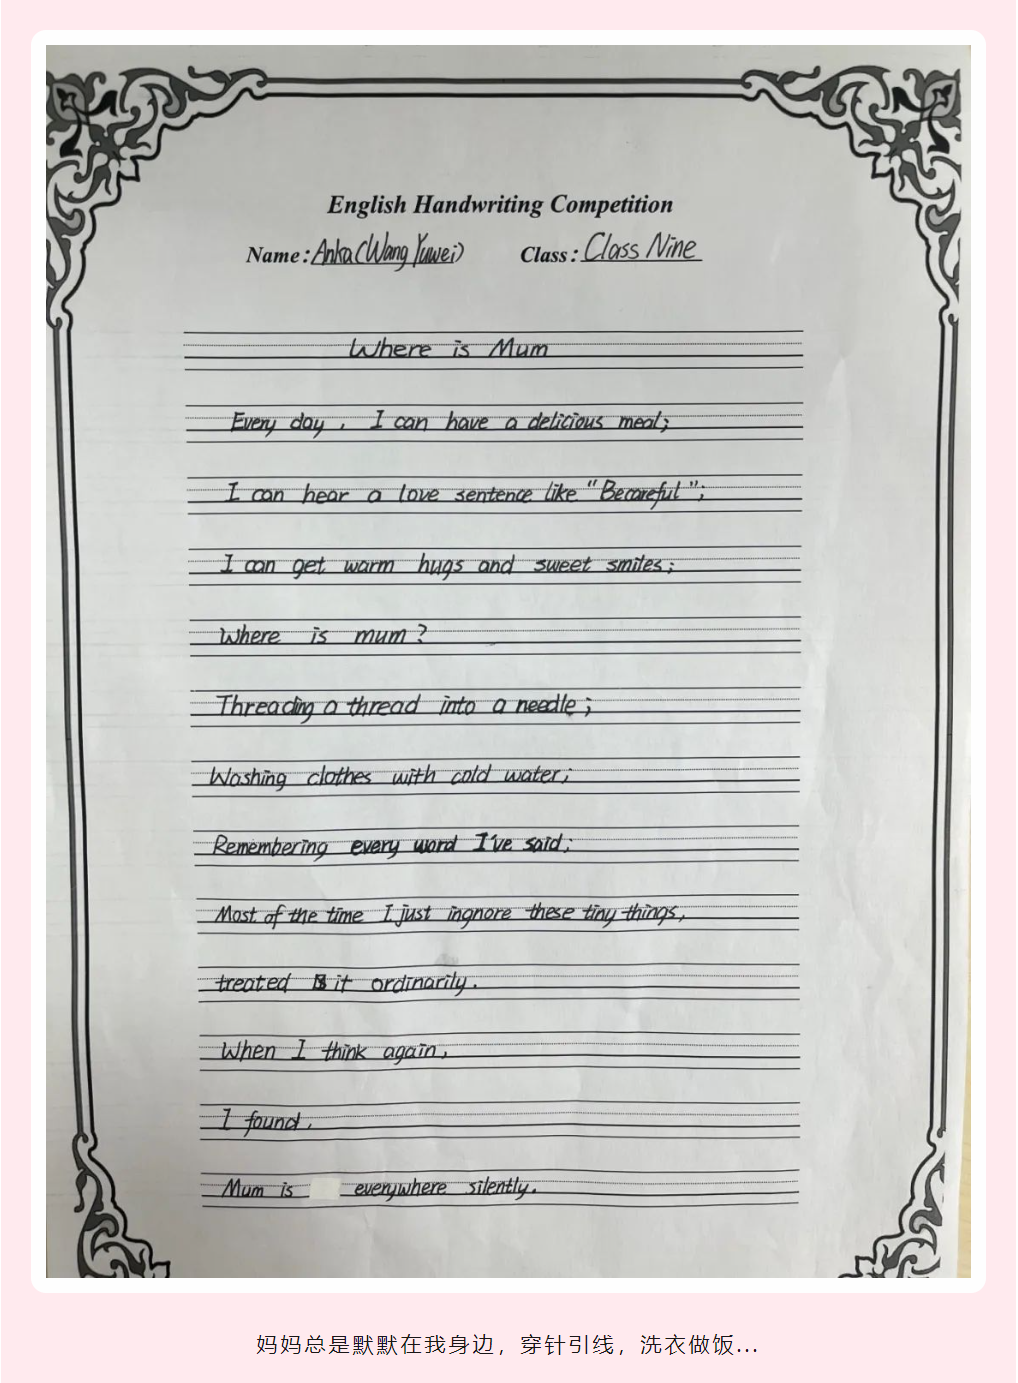 English Handwriting Competition
Name: Anka(Wang Yuwei) Class: Class Nine
Where is Mum
Every day, I can have a delicious meal;
I can hear a love sentence like "Becareful";
I can get warm hugs and sweet smiles;
Where is mum?
Threading a thread into a needle;
Washing clothes with cold water;
Remembering every word I've said;
Most of the time I just ingnore these tiny things,
treated it ordinarily.
When I think again,
I found,
Mum is everywhere silently.
妈妈总是默默在我身边，穿针引线，洗衣做饭...